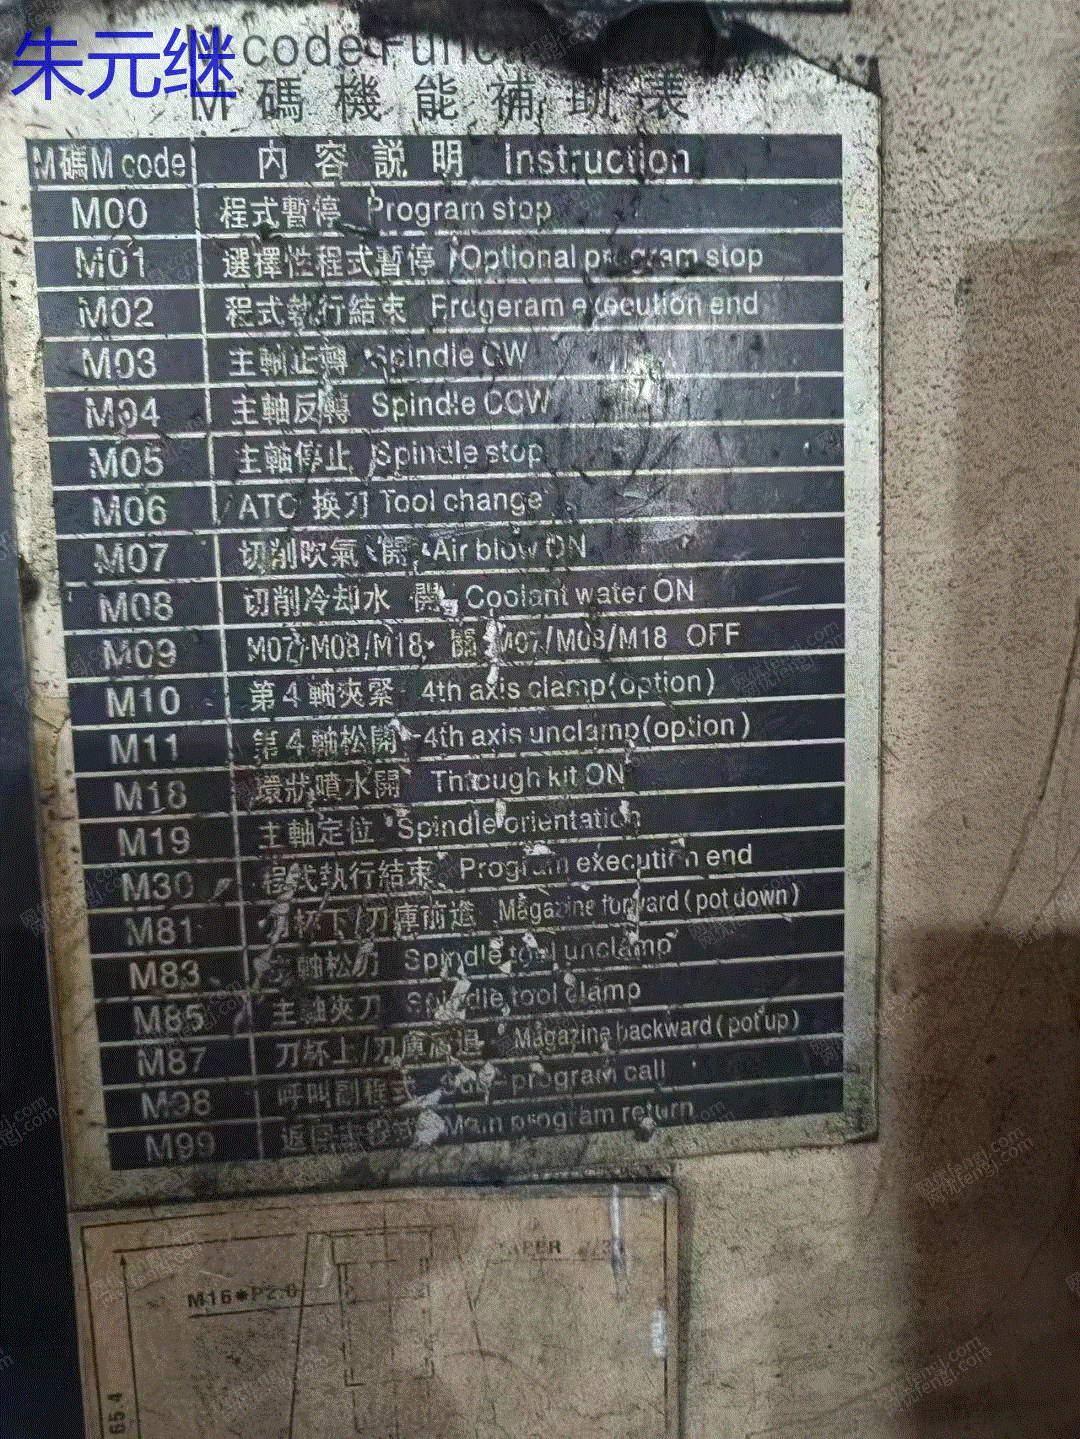 朱元继
M code Func
M 碼 機 能 補 助 表
M碼M code 內 容 説 明 Instruction
M00 程式暫停 Program stop
M01 選擇性程式暫停 Optional program stop
M02 程式執行結束 Progeram execution end
M03 主軸正轉 Spindle CW
M04 主軸反轉 Spindle CCW
M05 主軸停止 Spindle stop
M06 ATC 換刀 Tool change
M07 切削吹氣 開 Air blow ON
M08 切削冷却水 開 Coolant water ON
M09 M07/M08/M18 關 M07/M08/M18 OFF
M10 第4軸夾緊 4th axis clamp(option)
M11 第4軸松開 4th axis unclamp(option)
M18 環狀噴水開 Through kit ON
M19 主軸定位 Spindle orientation
M30 程式執行結束 Program execution end
M81 刀杯下/刀庫前進 Magazine forward(pot down)
M83 主軸松刀 Spindle tool unclamp
M85 主軸夾刀 Spindle tool clamp
M87 刀杯上/刀庫後退 Magazine backward(pot up)
M98 呼叫副程式 Sub-program call
M99 返回主程式 Main program return
TAPER
M16*P2.0
65.4